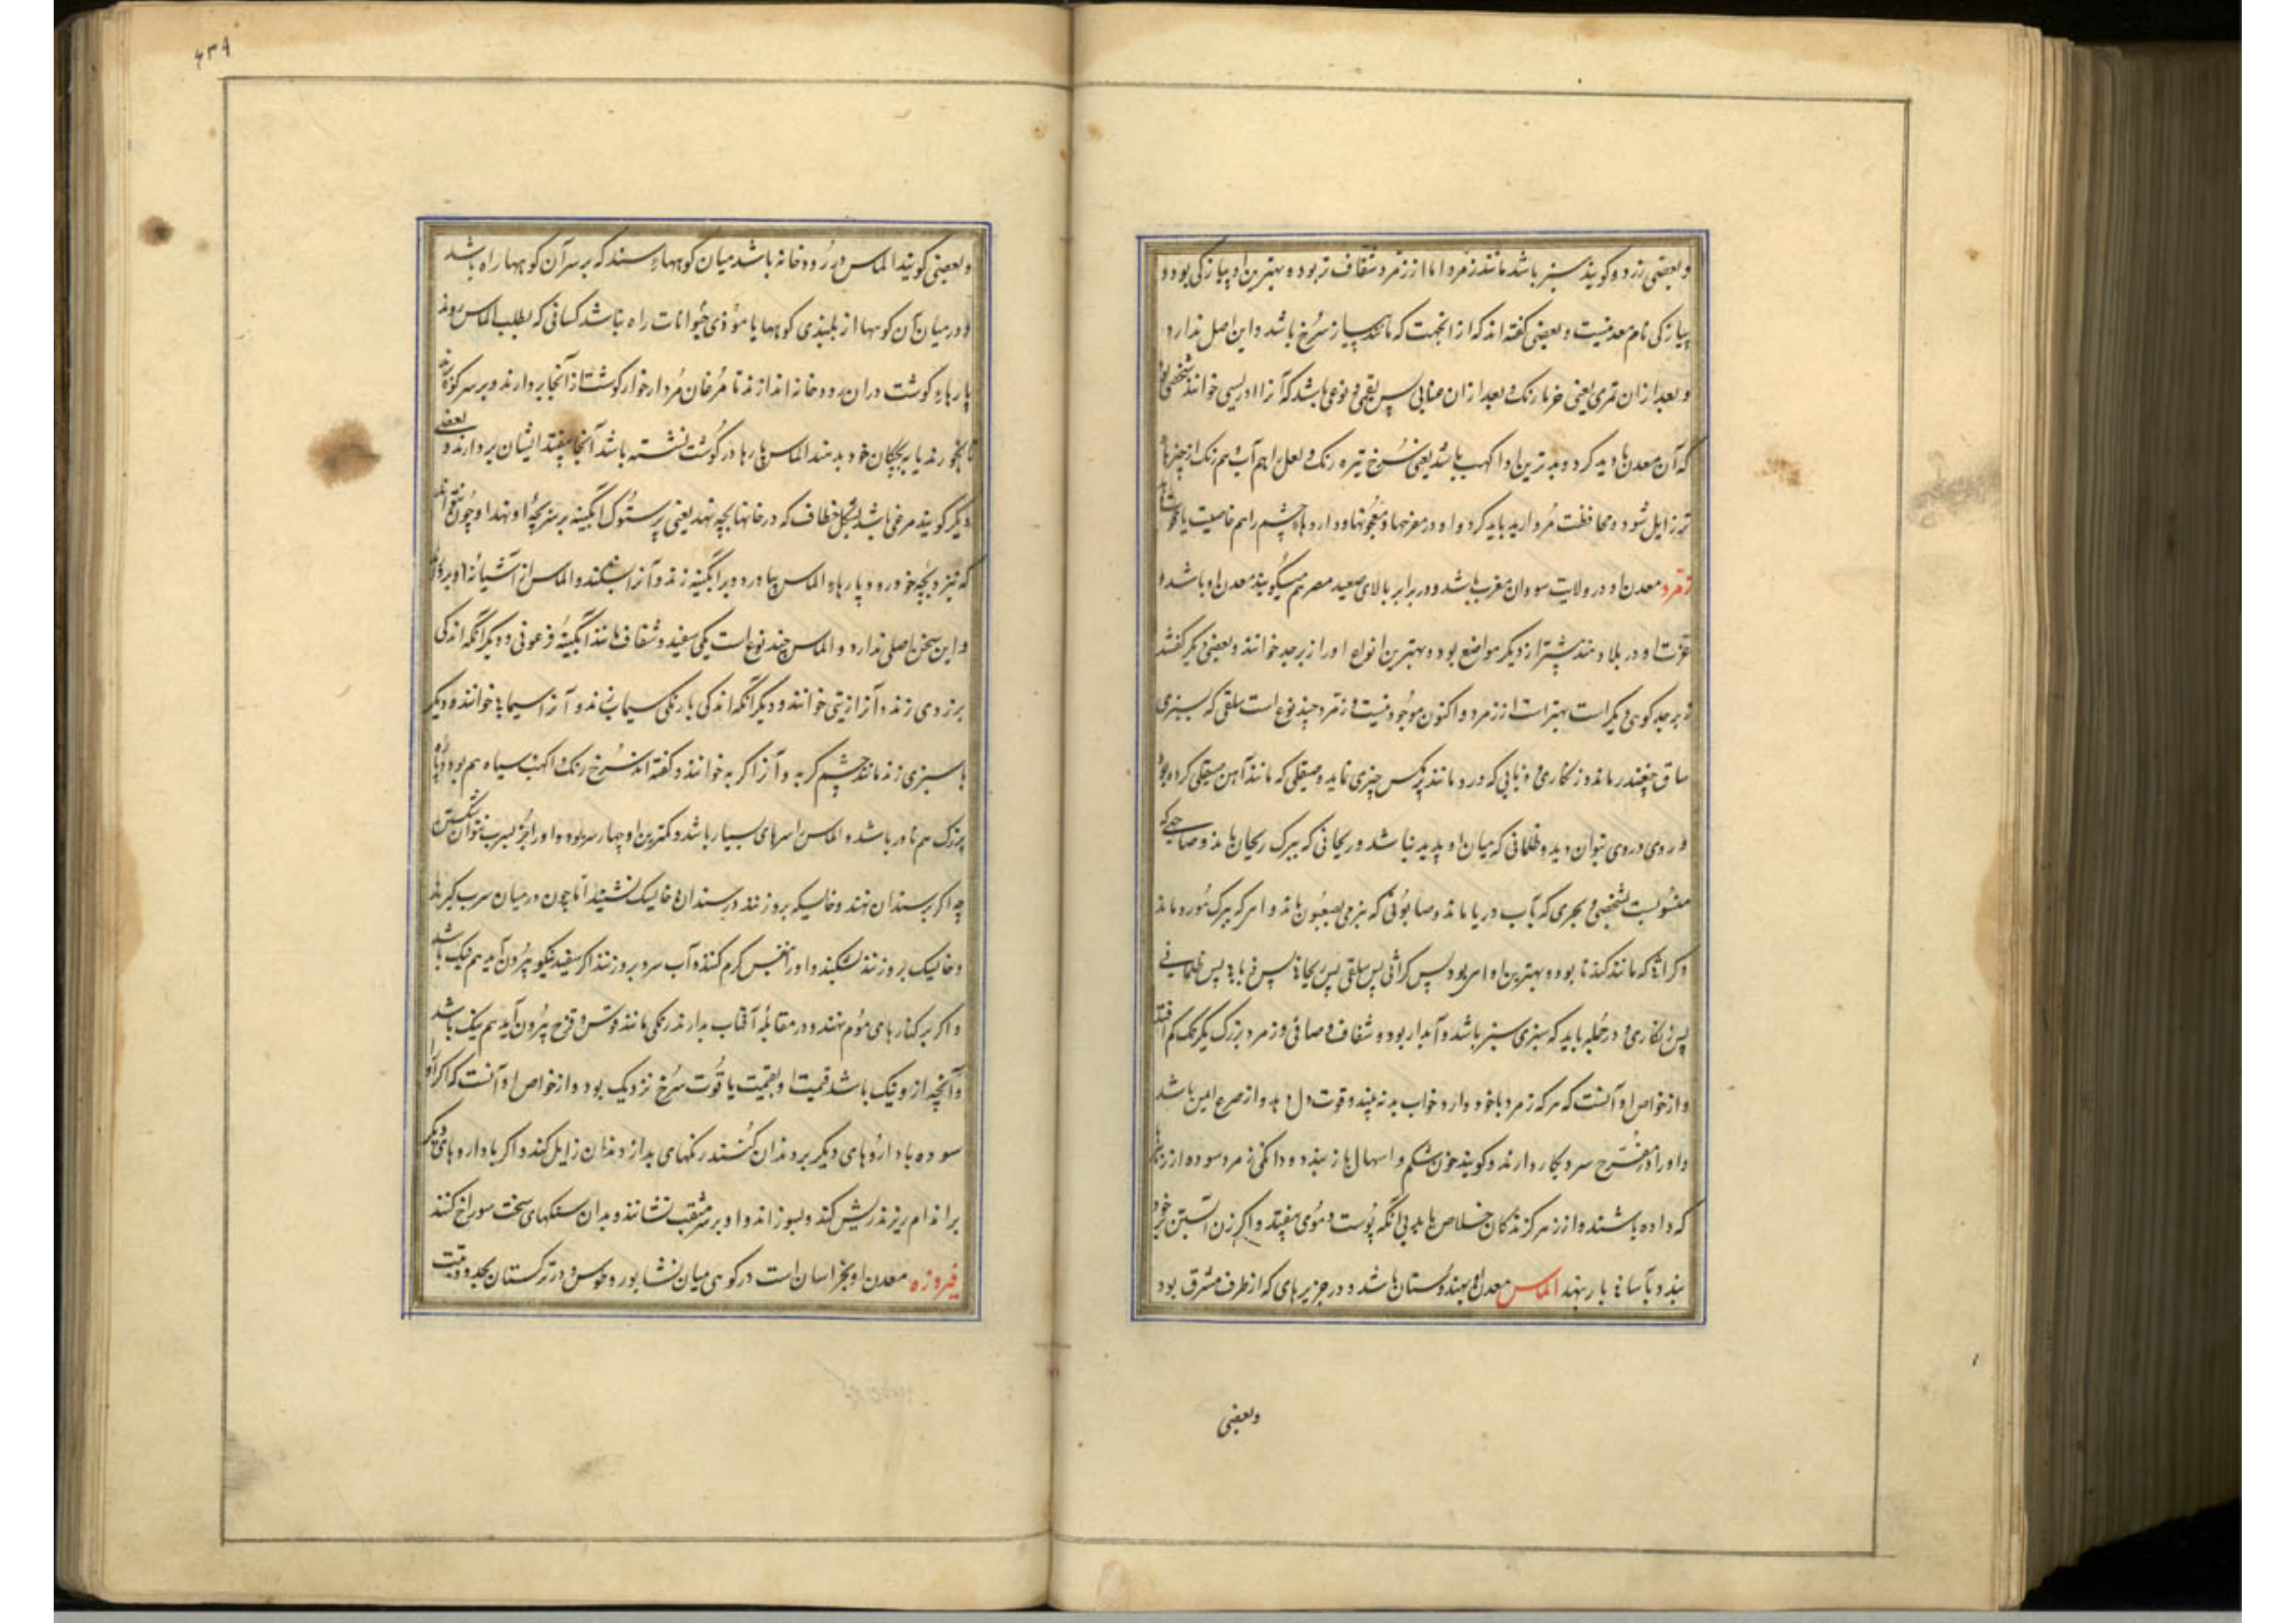 و بعضی زرد و کویند سبز باشد مانند زمرد اما از زمرد شفاف تر بود و بهترین او پیازکی بود و
پیازکی نام معدنیست و بعضی کفته اند که از انجهت که مانند پیاز سرخ باشد و این اصل ندارد
و بعد از ان تمری یعنی خرما رنک و بعد از ان عنابی پس بقمی و نوعی باشد که آنرا ادریسی خوانند شخصی بود
که آن معدن را دید کرد و بدترین او اکهب باشد یعنی سُرخ تیره رنک و لعل را هم آب و هم رنک از چیزهاء
تر زایل شود و محافظت مُروارید باید کرد و او در مفرحها و معجونها و داروهاء چشم را هم خاصیت یاقوت
زمرد معدن او در ولایت سودان مغرب باشد و در برابر بالای صعید مصر هم میکویند معدن او باشد و
عزت او در بلاد هند پیشتر از دیکر مواضع بود و بهترین انواع او را زبرجد خوانند و بعضی دیکر کفتند
زبرجد کوهری دیکر است بهتر از زمرد و اکنون موجود نیست و زمرد چند نوع است سلقی که سبزی
ساق چغندر ماند و زنکاری و ذبابی که درو مانند مکس چیزی نماید و صیقلی که مانند آهن صیقلی کرده بود
و روی دروی بتوان دید و ظلمانی که میان او پدید نباشد و ریحانی که ببرک ریحان ماند و صاحبی که
منسوبست بشخصی و بحری که بآب دریا ماند و صابونی که بنرمی بصابون ماند و اس که ببرک مورد ماند
و کراثی که مانند کندنا بود و بهترین او اس بود پس کراثی پس سلقی پس ریحانی پس ذبابی پس ظلمانی
پس زنکاری و در جمله باید که سبزی سبز باشد و آبدار بود و شفاف و صافی و زمرد بزرک یکرنک کم افتد
و از خواص او آنست که هر که زمرد باخود دارد خواب بد نه بیند و قوت دل دهد و از صرع ایمن باشد
و او را در مفرح سرد بکار دارند و کویند خون شکم و اسهال باز بندد و دانکی زمرد سوده از زهر
که داده باشند و از زهر کزندکان خلاص یابد بی انکه پوست و موی بیفتد و اکر زن آبستن بر خود
بندد بآسانی بار بنهد الماس معدن او بهندوستان باشد و در جزیرهای که از طرف مشرق بود
وبعضی
۴۳۹
و بعضی کویند الماس در رودخانه باشد میان کوههاءِ سند که بر سر آن کوهها راه باشد
و در میان آن کوهها از بلندی کوهها یا موذی حیوانات راه نباشد کسانی که بطلب الماس روند
پارهاءِ کوشت دران رودخانه اندازند تا مُرغان مُردار خوار کوشت از آنجا بردارند و بر سر کوه برند
تا بخورند یا ببچکان خود بدهند الماس پارها در کوشت نشسته باشد آنجا بیفتد ایشان بردارند و بعضی
دیکر کویند مرغی باشد بشکل خطاف که در خانها بچه نهد یعنی پرستوک ابکینه بر سر بچهٔ او نهند او چون
که نزد بچه خود رود پارهاءِ الماس بیاورد و بر ابکینه زند و آنرا بشکند و الماس از آشیانهٔ او بردارند
و این سخن اصلی ندارد و الماس چند نوع است یکی سفید و شفاف مانند ابکینهٔ فرعونی و دیکر آنکه اندکی
بزردی زند و آنرا زیتی خوانند و دیکر آنکه اندکی بارنکی سیماب زند و آنرا سیمابی خوانند و دیکر
با سبزی زند مانند چشم کربه و آنرا کربه خوانند و کفته اند سُرخ رنک و اکهب سیاه هم بود
بزرک هم نادر باشد و الماس را سرهای بسیار باشد و کمترین او چهار سر بود و او را جز بسرب نتوان شکستن
چه اکر بر سندان نهند و خایسک برو زنند در سندان و خایسک نشیند اما چون در میان سرب کیرند
و خایسک برو زنند بشکند و او را بنفس کرم کنند و آب سرد برو زنند اکر سفید نیکو بیرون آید هم نیک باشد
و اکر بر کنارهای موم نهند و در مقابلهٔ آفتاب بدارند رنکی مانند قوس و قزح بیرون آید هم نیک باشد
و آنچه از او نیک باشد قیمت او بقیمت یاقوت سرخ نزدیک بود و از خواص او آنست که اکر او
سوده با داروهای دیکر بر دندان کُنند رنکهای بد از دندان زایل کند و اکر با داروهای دیکر
بر اندام ریزند ریش کند و بسوزاند و او بر سر مثقب نشانند و بدان سنکهای سخت سوراخ کنند
فیروزه معدن او بخراسان است در کوهی میان نشابور و طوس و در ترکستان بحدود